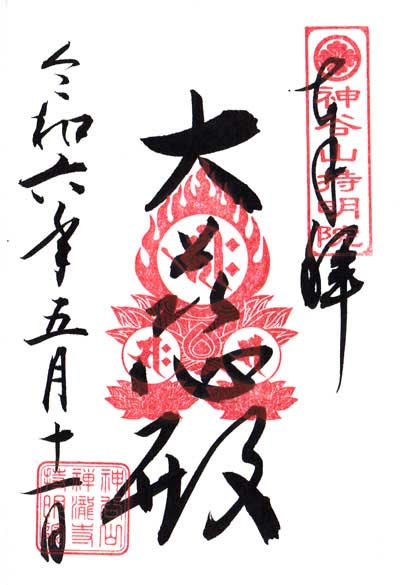 奉拝
神谷山持明院
大悲殿
令和六年五月十一日
神谷山
禅瀧寺
持明院